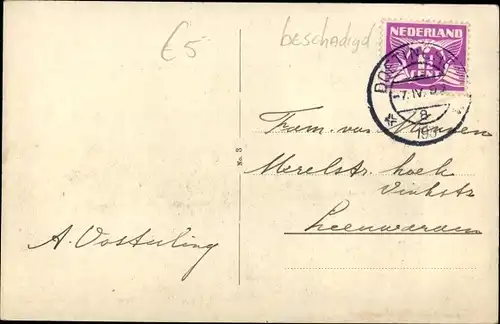 €5
beschadigd
NEDERLAND
1½
CENT
-7.IV.
8
193
Fam. van
Merelstr. hoek
Vinkstr
Leeuwarden
No. 3
A. Oosterling